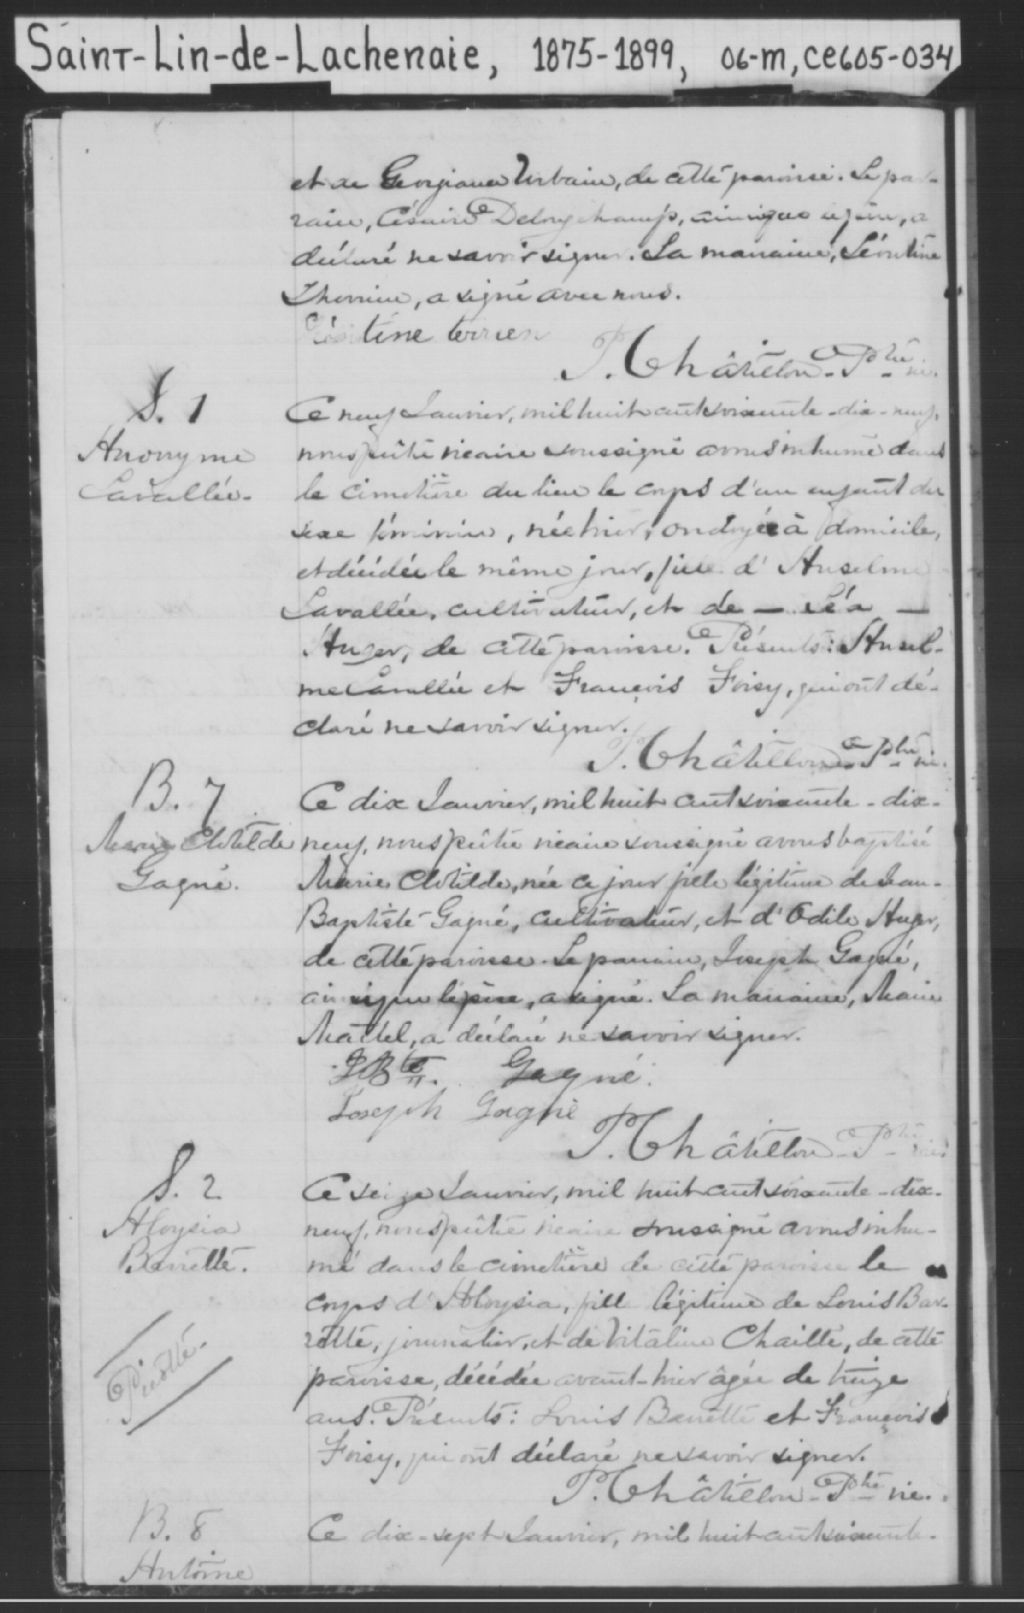 Saint-Lin-de-Lachenaie, 1875-1899, 06-M, CE605-034
et de Georgiana Urbain, de cette paroisse. Le par-
rain, Césaire Delongchamp, ainsi que le père, a
déclaré ne savoir signer. La marraine, Léontine
Therrien, a signé avec nous.
Léontine terrien
P. Châtillon Ptre vic.
S. 1
Anonyme
Lavallée.
Ce neuf Janvier, mil huit cent soixante-dix-neuf,
nous prêtre vicaire soussigné avons inhumé dans
le cimetière du lieu le corps d'un enfant du
sexe féminin, née hier, ondoyée à domicile,
et décédée le même jour, fille d'Anselme
Lavallée, cultivateur, et de — Léa —
Auger, de cette paroisse. Présents: Ansel-
me Lavallée et François Foisy, qui ont dé-
claré ne savoir signer.
P. Châtillon Ptre vic.
B. 7
Marie Clotilde
Gagné.
Ce dix Janvier, mil huit cent soixante-dix-
neuf, nous prêtre vicaire soussigné avons baptisé
Marie Clotilde, née ce jour fille légitime de Jean-
Baptiste Gagné, cultivateur, et d'Odile Auger,
de cette paroisse. Le parrain, Joseph Gagné,
ainsi que le père, a signé. La marraine, Marie
Mattel, a déclaré ne savoir signer.
J Bte. Gagné.
Joseph Gagné
P. Châtillon Ptre vic
S. 2
Aloysia
Barrette.
Picotte.
Ce seize Janvier, mil huit cent soixante-dix-
neuf, nous prêtre vicaire soussigné avons inhu-
mé dans le cimetière de cette paroisse le
corps d'Aloysia, fille légitime de Louis Bar-
rette, journalier, et de Vitaline Chaille, de cette
paroisse, décédée avant-hier âgée de treize
ans. Présents: Louis Barrette et François
Foisy, qui ont déclaré ne savoir signer.
P. Châtillon Ptre vic.
B. 8
Antoine
Ce dix-sept Janvier, mil huit cent soixante-